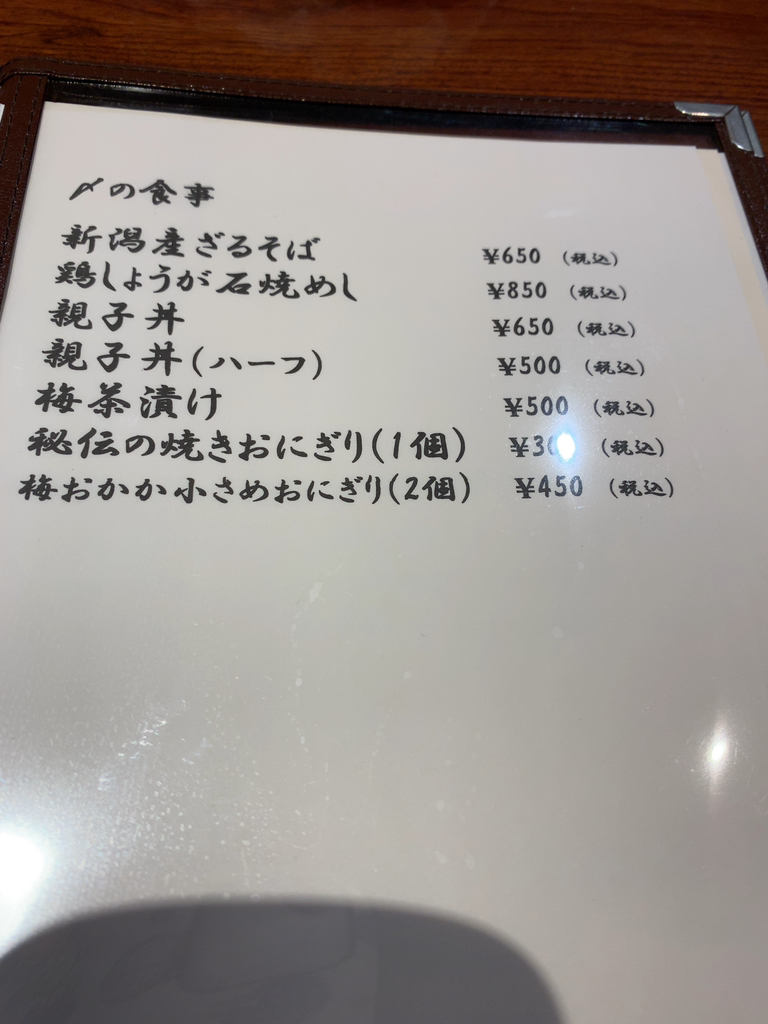 〆の食事
新潟産ざるそば ¥650 (税込)
鶏しょうが石焼めし ¥850 (税込)
親子丼 ¥650 (税込)
親子丼(ハーフ) ¥500 (税込)
梅茶漬け ¥500 (税込)
秘伝の焼きおにぎり(1個) (税込)
梅おかか小さめおにぎり(2個) ¥450 (税込)